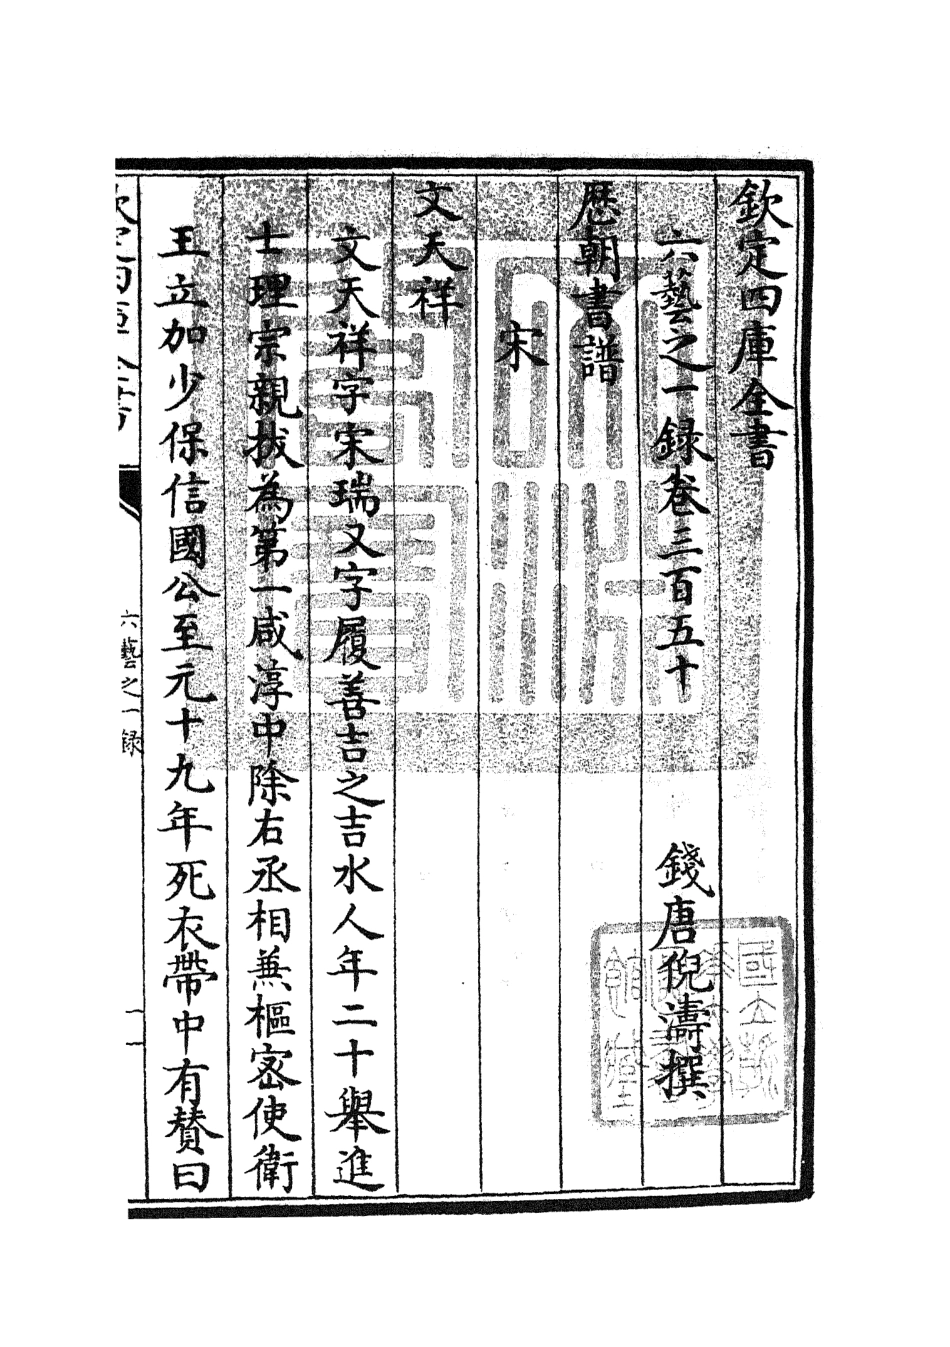 欽定四庫全書
六藝之一録卷三百五十
錢唐倪濤撰
歴朝書譜
宋
文天祥
文天祥字宋瑞又字履善吉之吉水人年二十舉進
士理宗親拔為第一咸淳中除右丞相兼樞密使衛
王立加少保信國公至元十九年死衣帶中有賛曰
六藝之一録
一